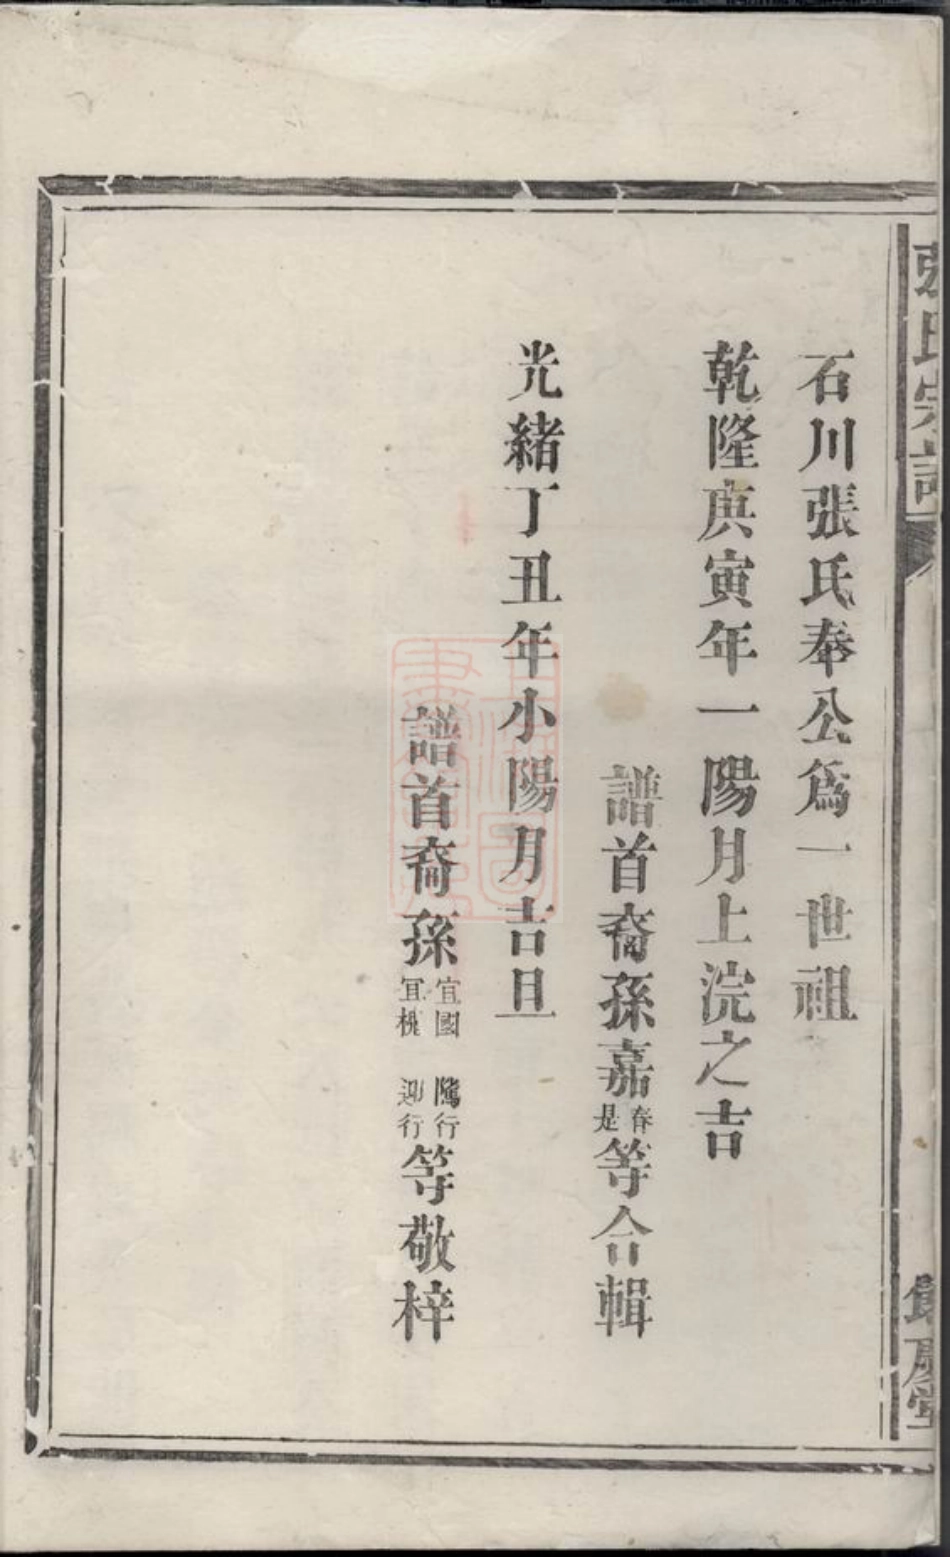 張氏宗譜
石川張氏奉公爲一世祖
乾隆庚寅年一陽月上浣之吉
譜首裔孫嘉春是等合輯
光緒丁丑年小陽月吉旦
譜首裔孫宜國宜槐 隲行迎行等敬梓